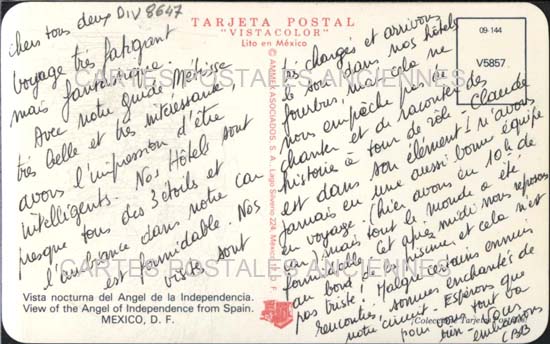 chers tous deux DIV 8647
voyage très fatigant
mais fantastique.
Avec notre guide Métisse
très belle et très intéressante,
avons l'impression d'être
intelligents. Nos Hôtels sont
presque tous des 3 étoiles et
l'ambiance dans notre car
est formidable. Nos
visites sont
Vista nocturna del Angel de la Independencia.
View of the Angel of Independence from Spain.
MEXICO, D. F.
TARJETA POSTAL
"VISTACOLOR"
Lito en México
© AMMEX ASOCIADOS, S. A., Lago Silverio 224, México
très chargés et arrivons
le soir dans nos hôtels
fourbus, mais cela ne
nous empêche pas de
chanter et de raconter des
histoires à tour de rôle. Claude
est dans son élément ! N'avons
jamais eu une aussi bonne équipe
en voyage. (hier avons eu 10 h de
car mais tout le monde a été
formidable. Cet après midi nous reposons
au bord de la piscine et cela n'est
pas triste ! Malgré certains ennuis
rencontrés, sommes enchantés de
notre circuit. Espérons que
pour vous tout va
bien. Vous
embrassons
09-144
V5857
CARTES POSTALES ANCIENNES
CARTES POSTALES ANCIENNES